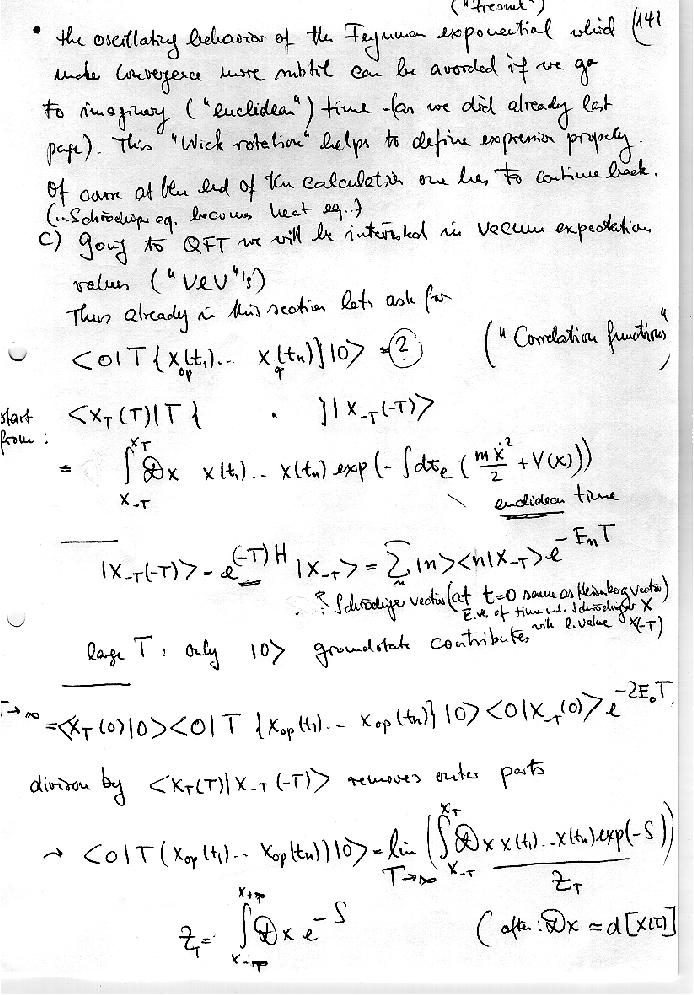 ("Fresnel")
• the oscillating behavior of the Feynman exponential which (141
make convergence more subtil can be avoided if we go
to imaginary ("euclidean") time (as we did already last
page). This "Wick rotation" helps to define expression properly.
Of course at the end of the calculation one has to continue back.
(.. Schrödinger eq. becomes heat eq..)
C) Going to QFT we will be interested in vacuum expectation
values ("VeV"'s)
Thus already in this section lets ask for
<0|T{x_op(t_1)... x_op(t_n)}|0> = ? ("Correlation functions"
start from: <x_T(T)|T{ · }|x_-T(-T)>
= ∫_{x_-T}^{x_T} Dx x(t_1)... x(t_n) exp(-∫dt_e (mẋ²/2 + V(x)))
euclidean time
|x_-T(-T)> = e^{(-T)H} |x_-T> = Σ_n |n><n|x_-T> e^{-E_n T}
Schrödinger vector (at t=0 same as Heisenberg vector)
E.v. of time ind. Schrödinger X
with e.value x(-T)
large T: only |0> groundstate contributes
T→∞ = <x_T(0)|0><0|T{x_op(t_1)... x_op(t_n)}|0><0|x_-T(0)> e^{-2E_0T}
division by <x_T(T)|x_-T(-T)> removes outer parts
→ <0|T(x_op(t_1)... x_op(t_n))|0> = lim_{T→∞} (∫_{x_-T}^{x_T} Dx x(t_1)... x(t_n) exp(-S)) / Z_T
Z_T = ∫_{x_-T}^{x_+T} Dx e^{-S} (often: Dx ≃ d[x(t)]